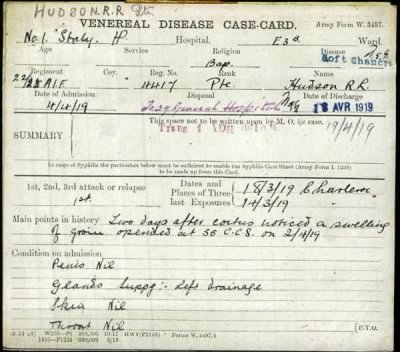 HUDSON. R.R Pte.
VENEREAL DISEASE CASE-CARD. Army Form W. 3497.
No.1. "Staty. H" Hospital. E3 B. Ward.
Age Service Religion Disease
Bap. Soft Chancre
Regiment No. Rank Name
A.I.F. 4417 Pte. Hudson R.R.
Date of Admission Date of Discharge
4/4/19 General Hospital 18 AVR 1919
This space not to be written upon by M.O. i/c case. 19/4/19
SUMMARY
In case of Syphilis the particulars below must be sufficient to enable the Syphilis Case Sheet (Army Form I. 1238)
to be made up from this Card.
1st, 2nd, 3rd attack or relapse Dates and Places of Three last Exposures 18/3/19 Charleroi
1st 14/3/19
Main points in history Two days after coitus noticed a swelling
of groin opened at 55 C.C.S. on 2/4/19
Condition on admission
Penis Nil
Glands Suppg:- Left Drainage
Skin Nil
Throat Nil
P.T.O.
Forms W. 3497/4